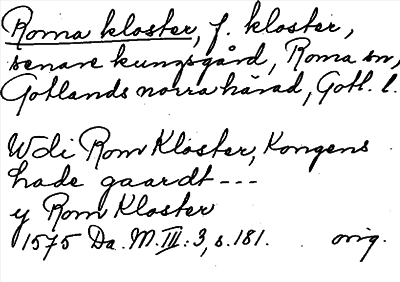 Roma kloster, f. kloster,
senare kungsgård, Roma sn,
Gotlands norra härad, Gotl. l.
Wdi Rom Kloster, Kongens
hade gaardt ---
y Rom Kloster
1575 Da. M. III: 3, s. 181. orig.